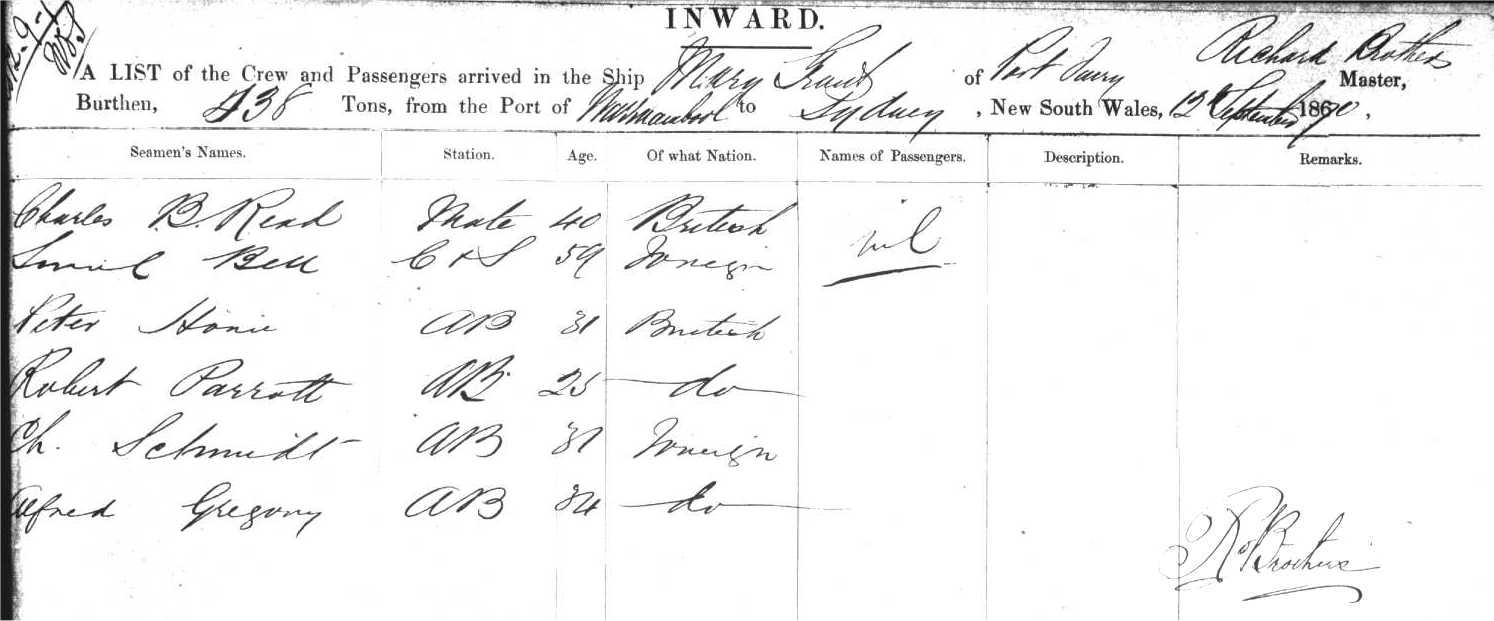 12-9-
INWARD.
A LIST of the Crew and Passengers arrived in the Ship Mary Grant of Port Fairy Richard Brothers Master,
Burthen, 438 Tons, from the Port of Warrnambool to Sydney, New South Wales, 12 September 1870,
Seamen's Names. Station. Age. Of what Nation. Names of Passengers. Description. Remarks.
Charles B. Read Mate 40 British nil
Bell C & S 59 Foreign
Peter AB 31 British
Robert Parrott AB 25 do
Ch. Schmidt AB 31 Foreign
Alfred Gregory AB 34 do
Rd Brothers